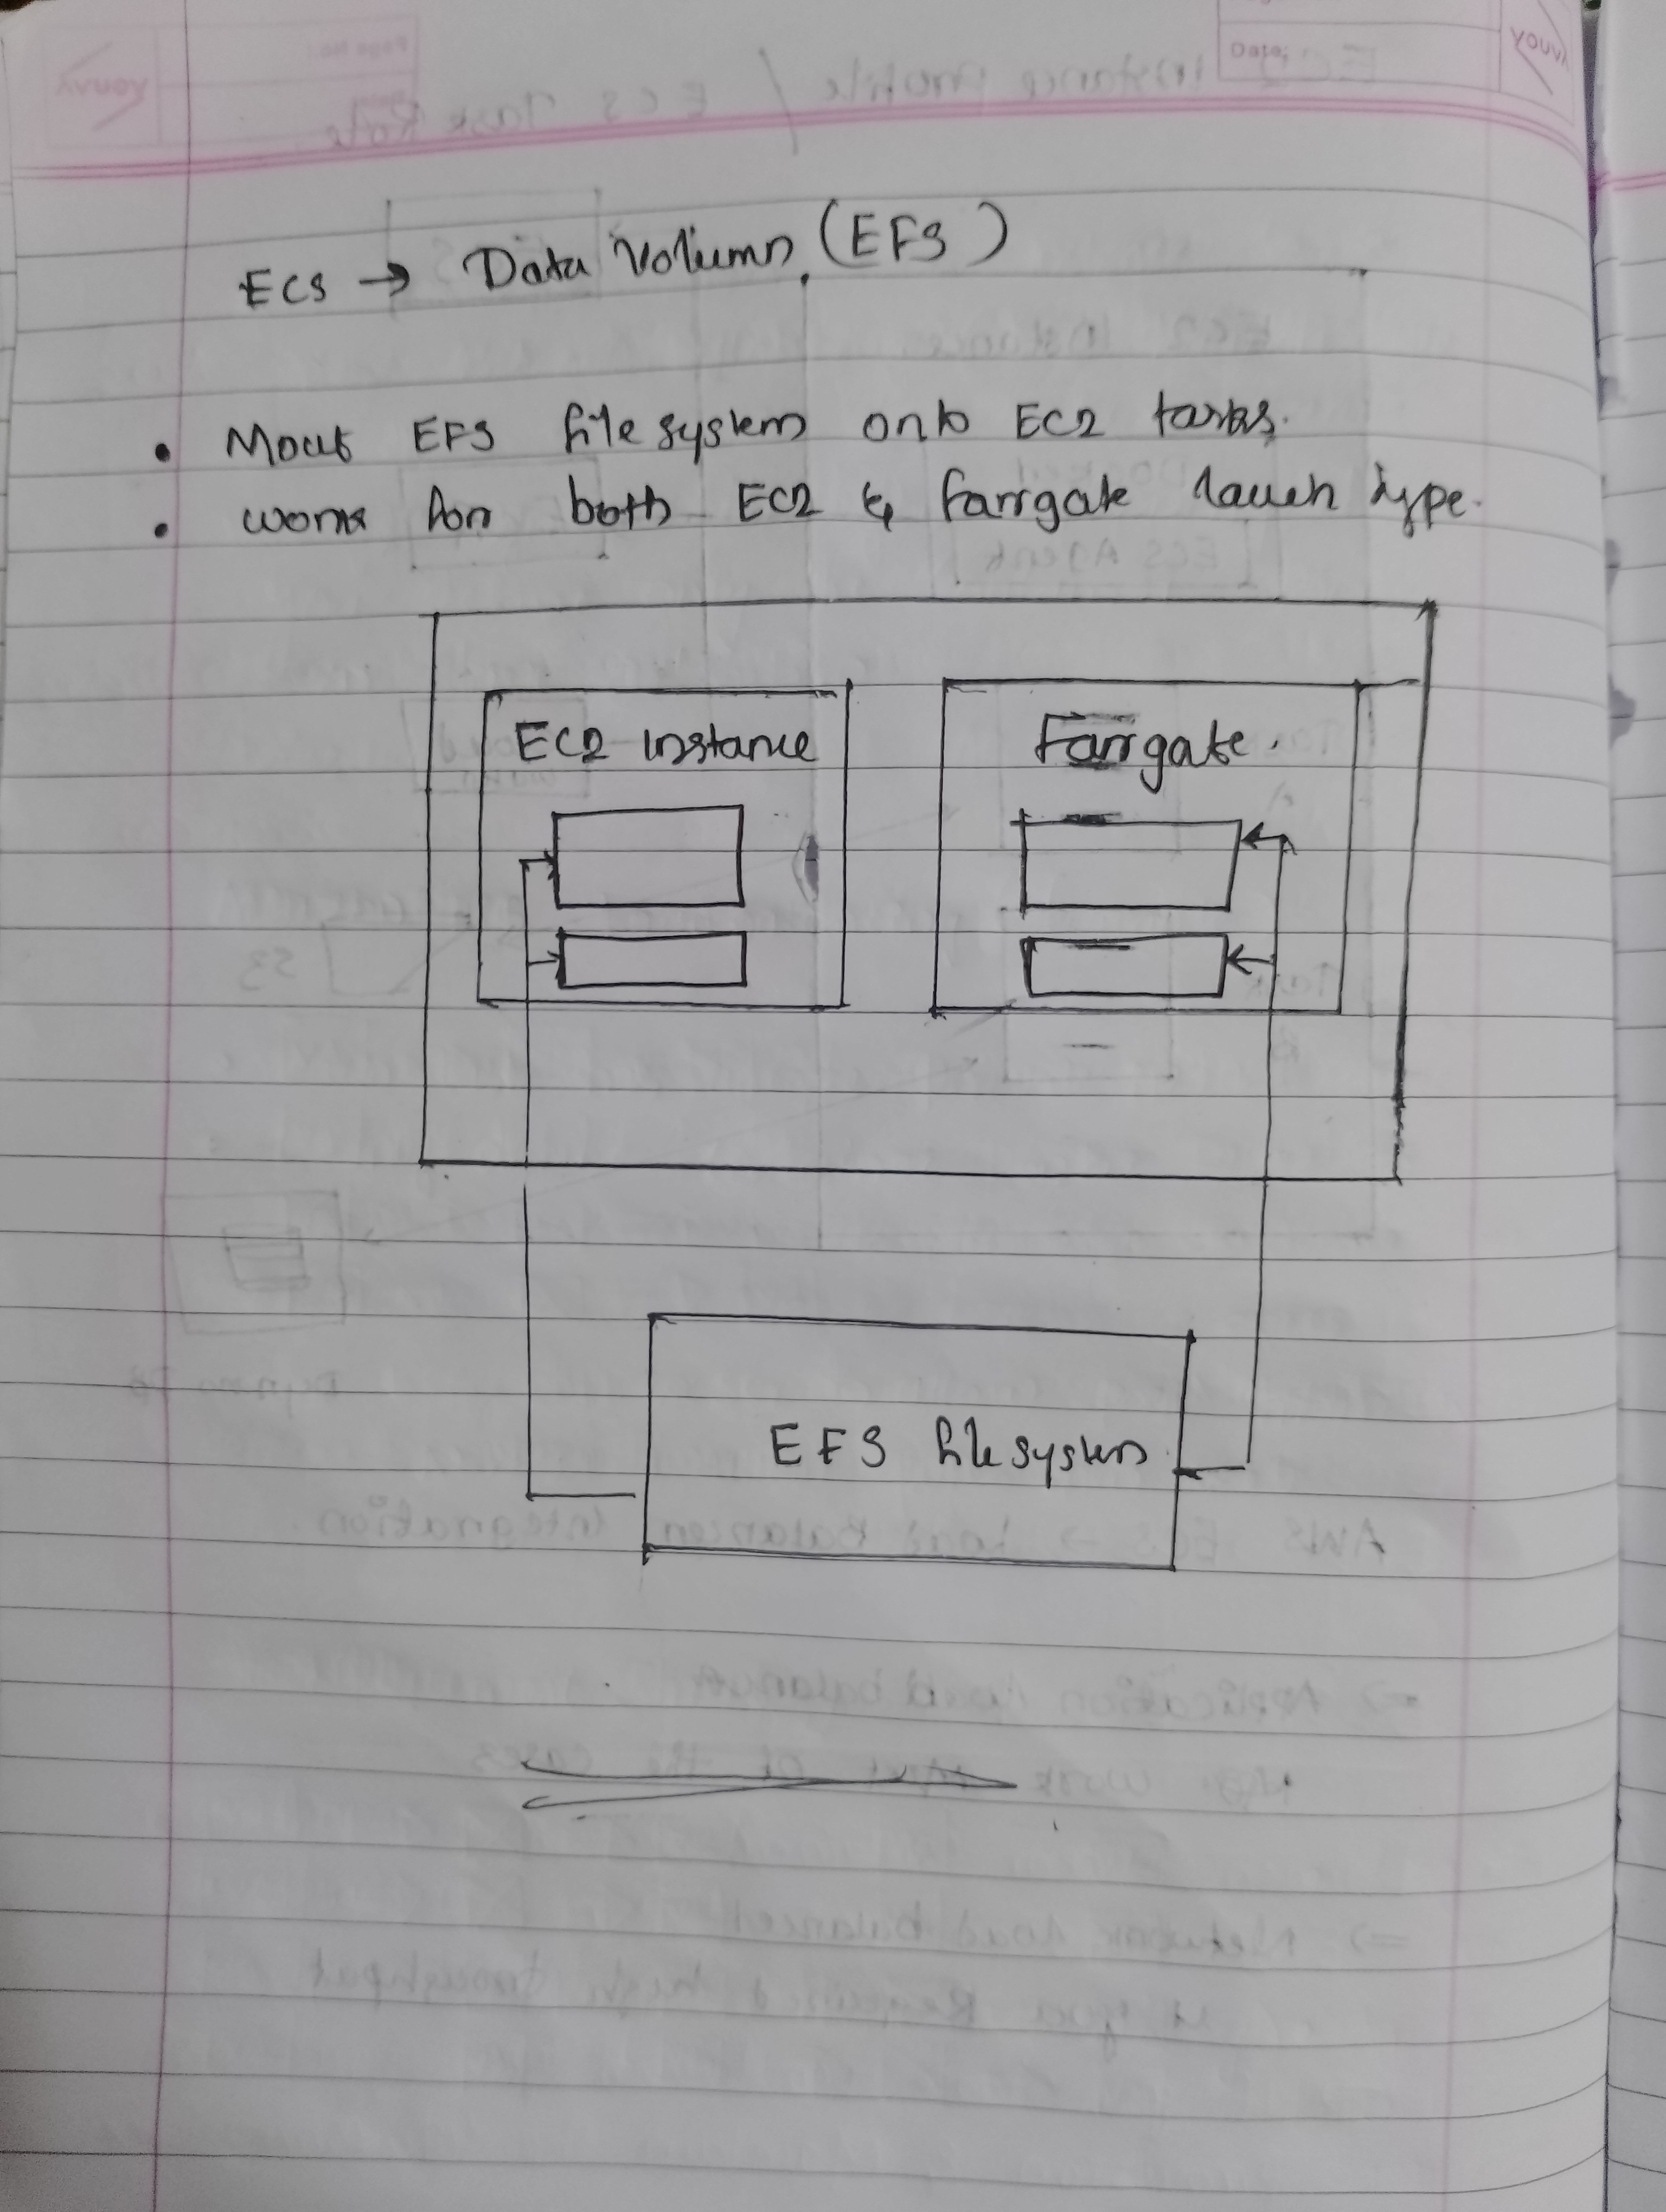 ECS → Data Volumn (EFS)
• Mout EFS file system onto EC2 tasks.
• works for both EC2 & farrgate lauch type.
EC2 instance
Farrgate.
EFS file system